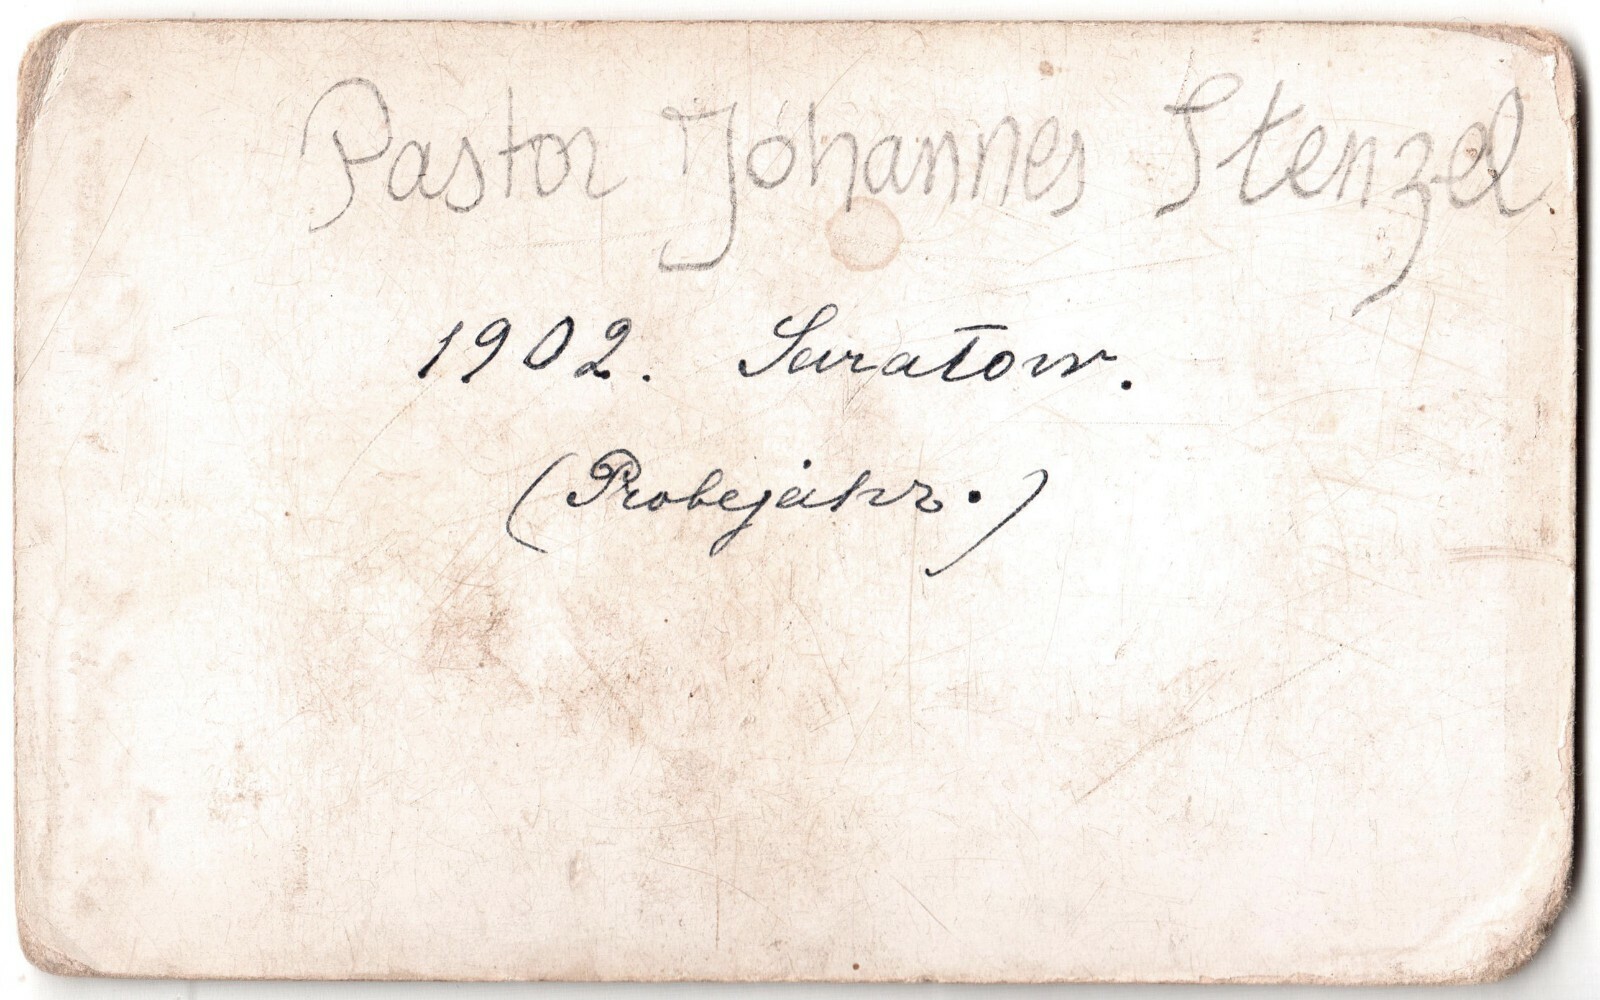 Pastor Johannes Stenzel
1902. Saratow.
(Probejahr.)